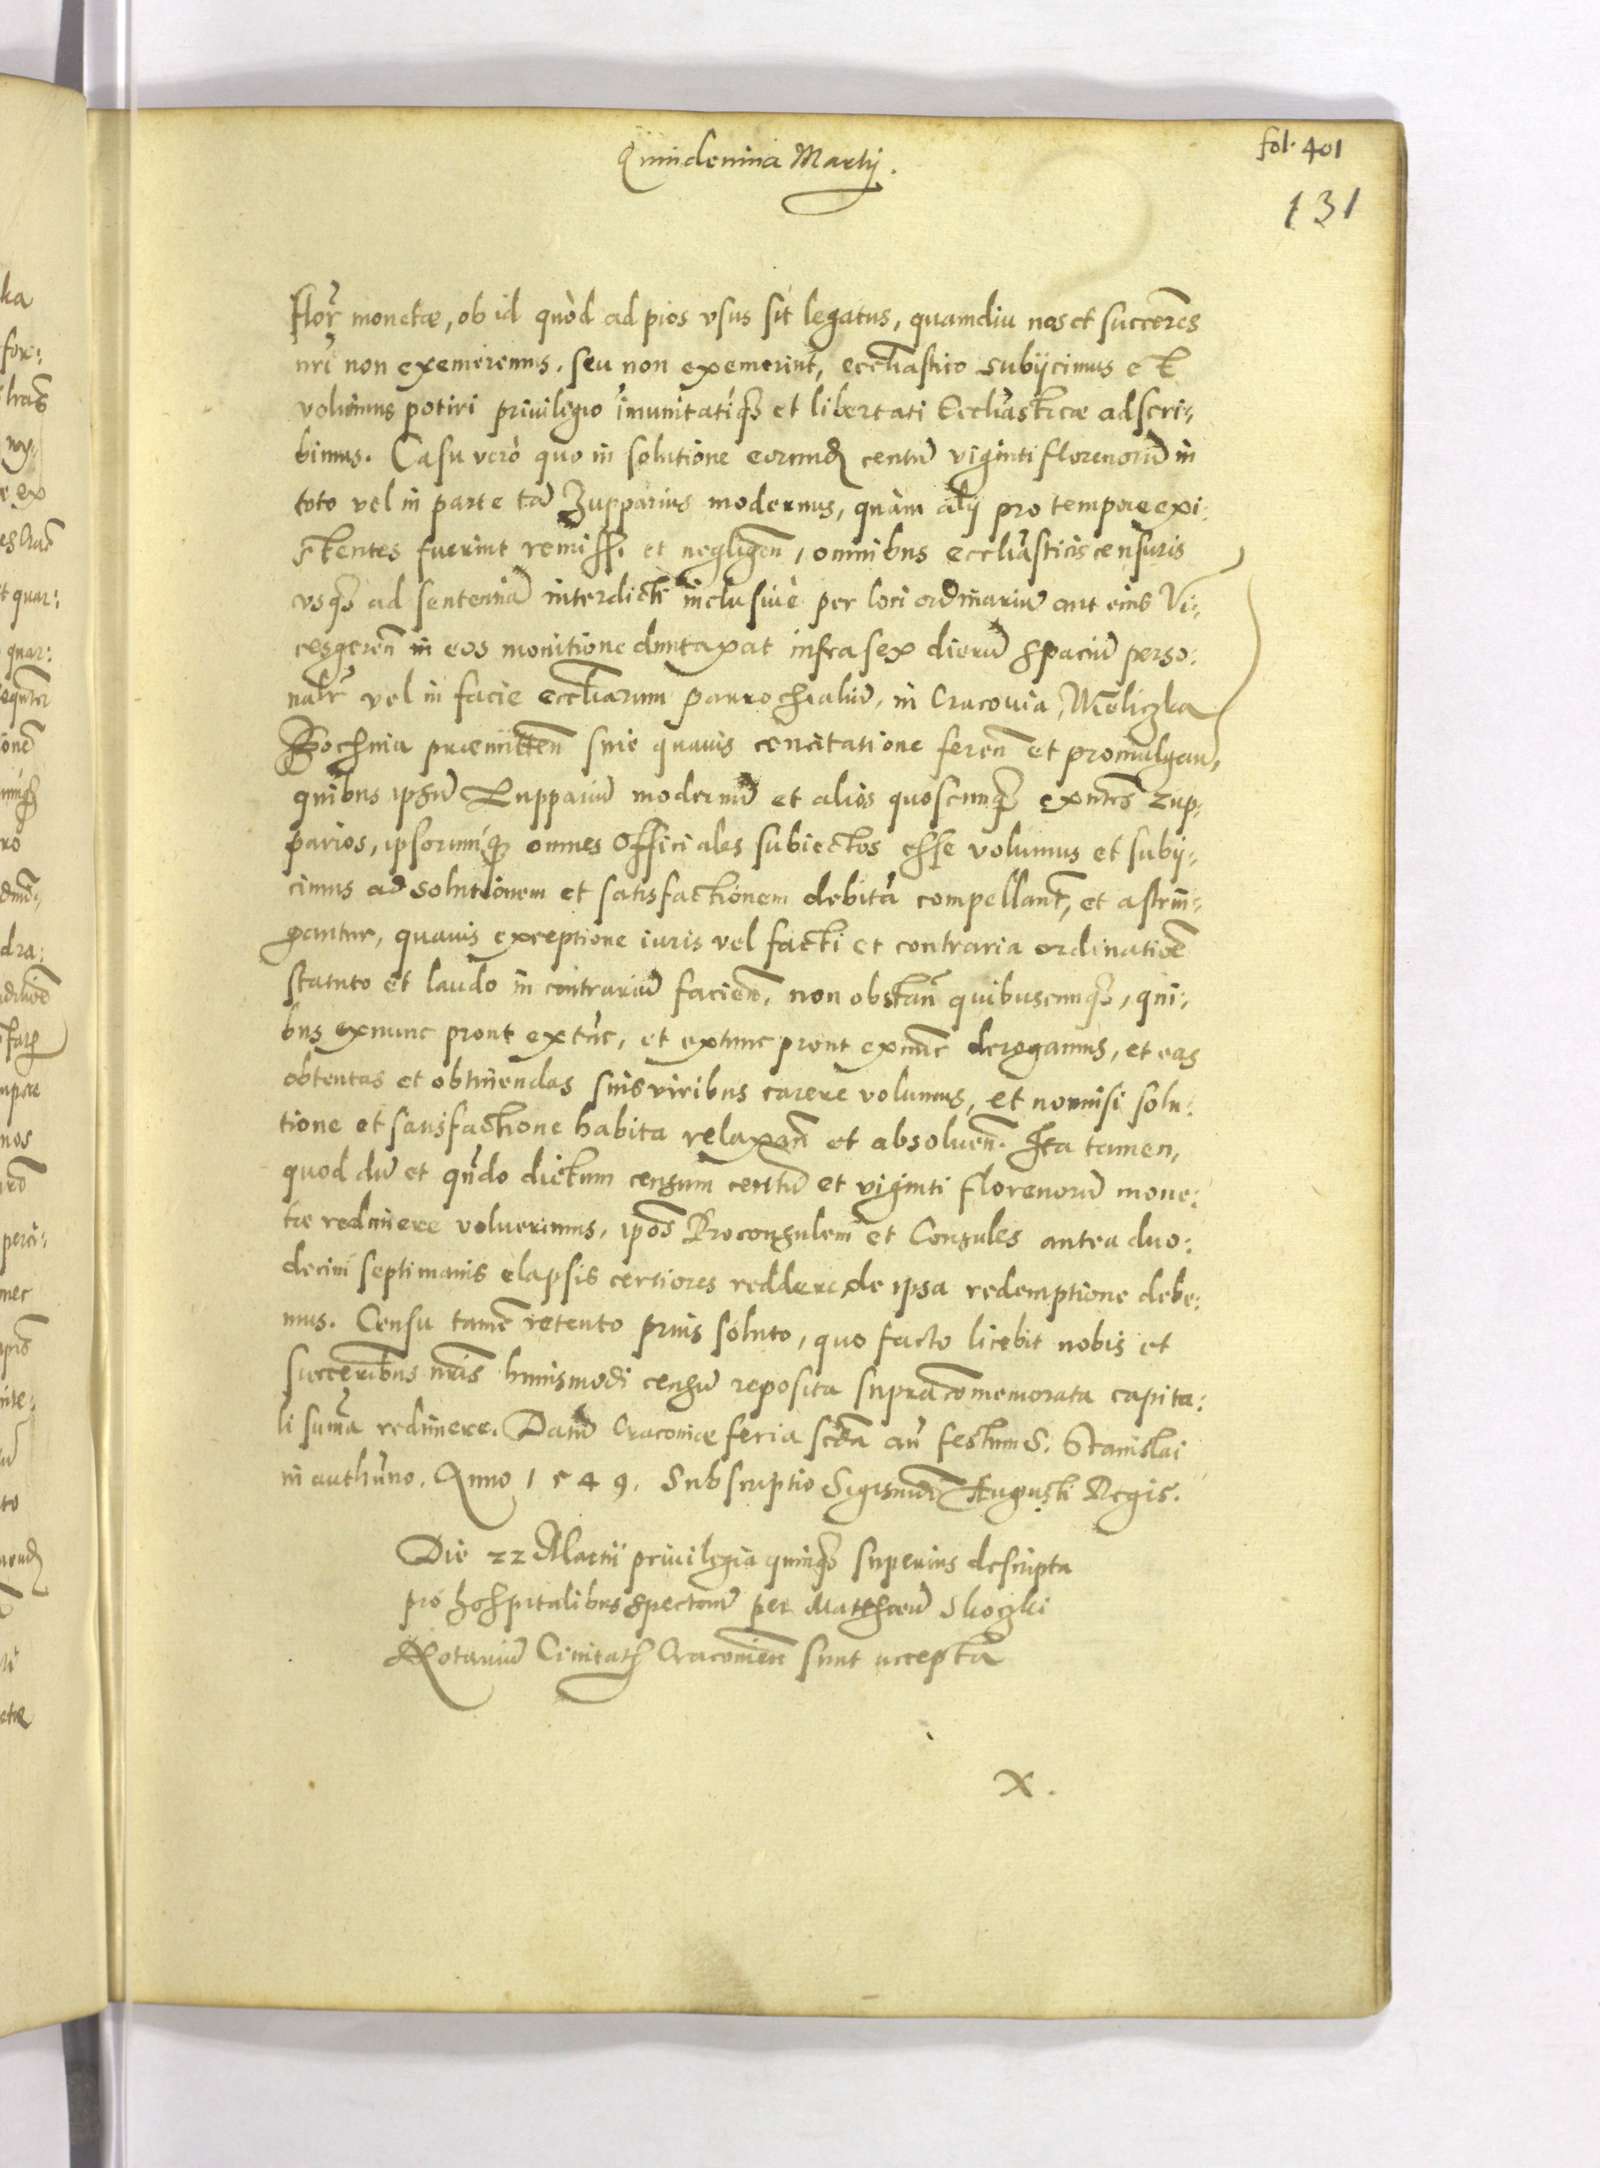 Quindenina Martij.
fol. 401
131
Flor̃ monetæ, ob id quòd ad pios vsus sit legatus, quamdiu nos et succeres
nr̃i non exemeremus. seu non exemerint, eccl̃iastico subijcimus et
volumus potiri priuilegio im̃unitatiq3 et libertati Eccl̃iasticæ adscri:
bimus. Casu verò quo in solutione eorund̃ centũ viginti florenorũ in
toto vel in parte tã Zupparius modernus, quàm alij pro tempore exi:
stentes fuerint remiss. et negligeñ, omnibus eccl̃iasticis censuris
vsq3 ad sententiã interdicti inclusiuè per loci ordinariũ aut eius Vi:
cesgereñ in eos monitione duntaxat infra sex dierũ spaciũ perso:
nalr̃ vel in facie eccl̃iarum parrochialiũ, in Cracouia, Weliczka
Bochnia præmitteñ sine quauis concitatione fereñ et promulgan:
quibus ipsũ Zuppariũ modernũ et alios quoscunq3 exntes zup:
parios, ipsorumq3 omnes Officiales subiectos esse volumus et subij:
cimus ad solutionem et satisfactionem debitã compellant, et astrin:
gantur, quauis exceptione iuris vel facti et contraria ordinatiõe
statuto et laudo in contrariũ facieñ. non obstañ quibuscunq3, qui:
bus exnunc prout extũc, et extunc prout exnũc derogamus, et eas
obtentas et obtinendas suis viribus carere volumus, et nonnisi solu:
tione et satisfactione habita relaxañ et absolueñ. Ita tamen,
quod dũ et qñdo dictum censum centũ et viginti florenorũ mone:
tæ redimere voluerimus, ip̃os Proconsulem et Consules antea duo:
decim septimanis elapsis certiores reddere de ipsa redemptione debe:
mus. Censu tamẽ retento prius soluto, quo facto licebit nobis et
succeribus nr̃is huiusmodi censũ reposita supracom̃emorata capita:
li sum̃a redimere. Datũ Cracouiæ feria scd̃a añ festum S. Stanislai
in authũno. Anno 1549. Subscriptio Sigismũdi Augusti Regis.
Die 22 Martij priuilegia quinq3 superius descripta
pro hospitalibus spectantĩ per Matthæũ Skoczki
Notariũ Ciuitatis Cracouieñ sunt accepta
X.